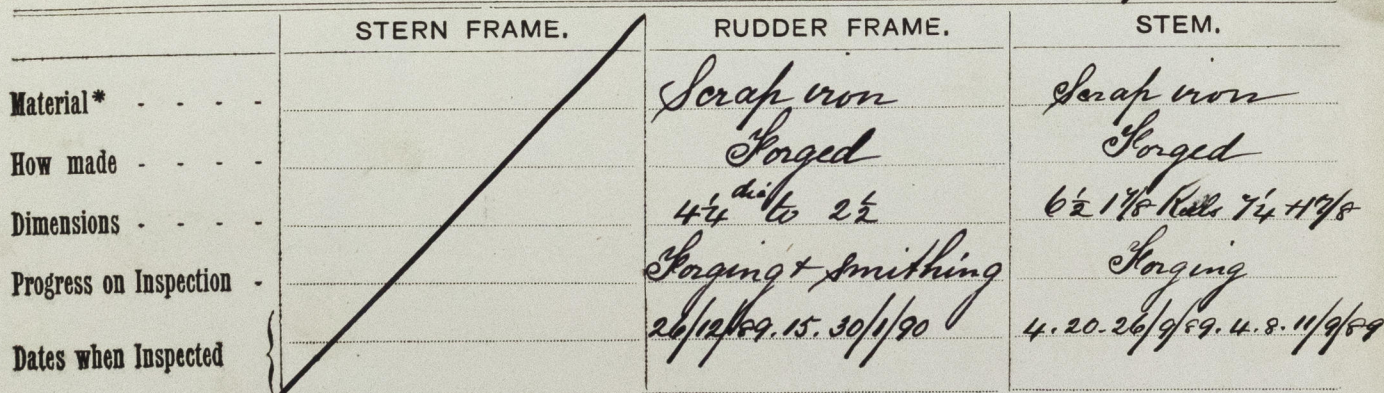 STERN FRAME. RUDDER FRAME. STEM.
Material* - - - - Scrap iron Scrap iron
How made - - - - Forged Forged
Dimensions - - - - 4¼ dia to 2½ 6½ 1⅞ Keels 7¼ + 1⅞
Progress on Inspection - Forging + smithing Forging
Dates when Inspected 26/12/89. 15. 30/1/90 4. 20. 26/9/89. 4. 8. 11/9/89